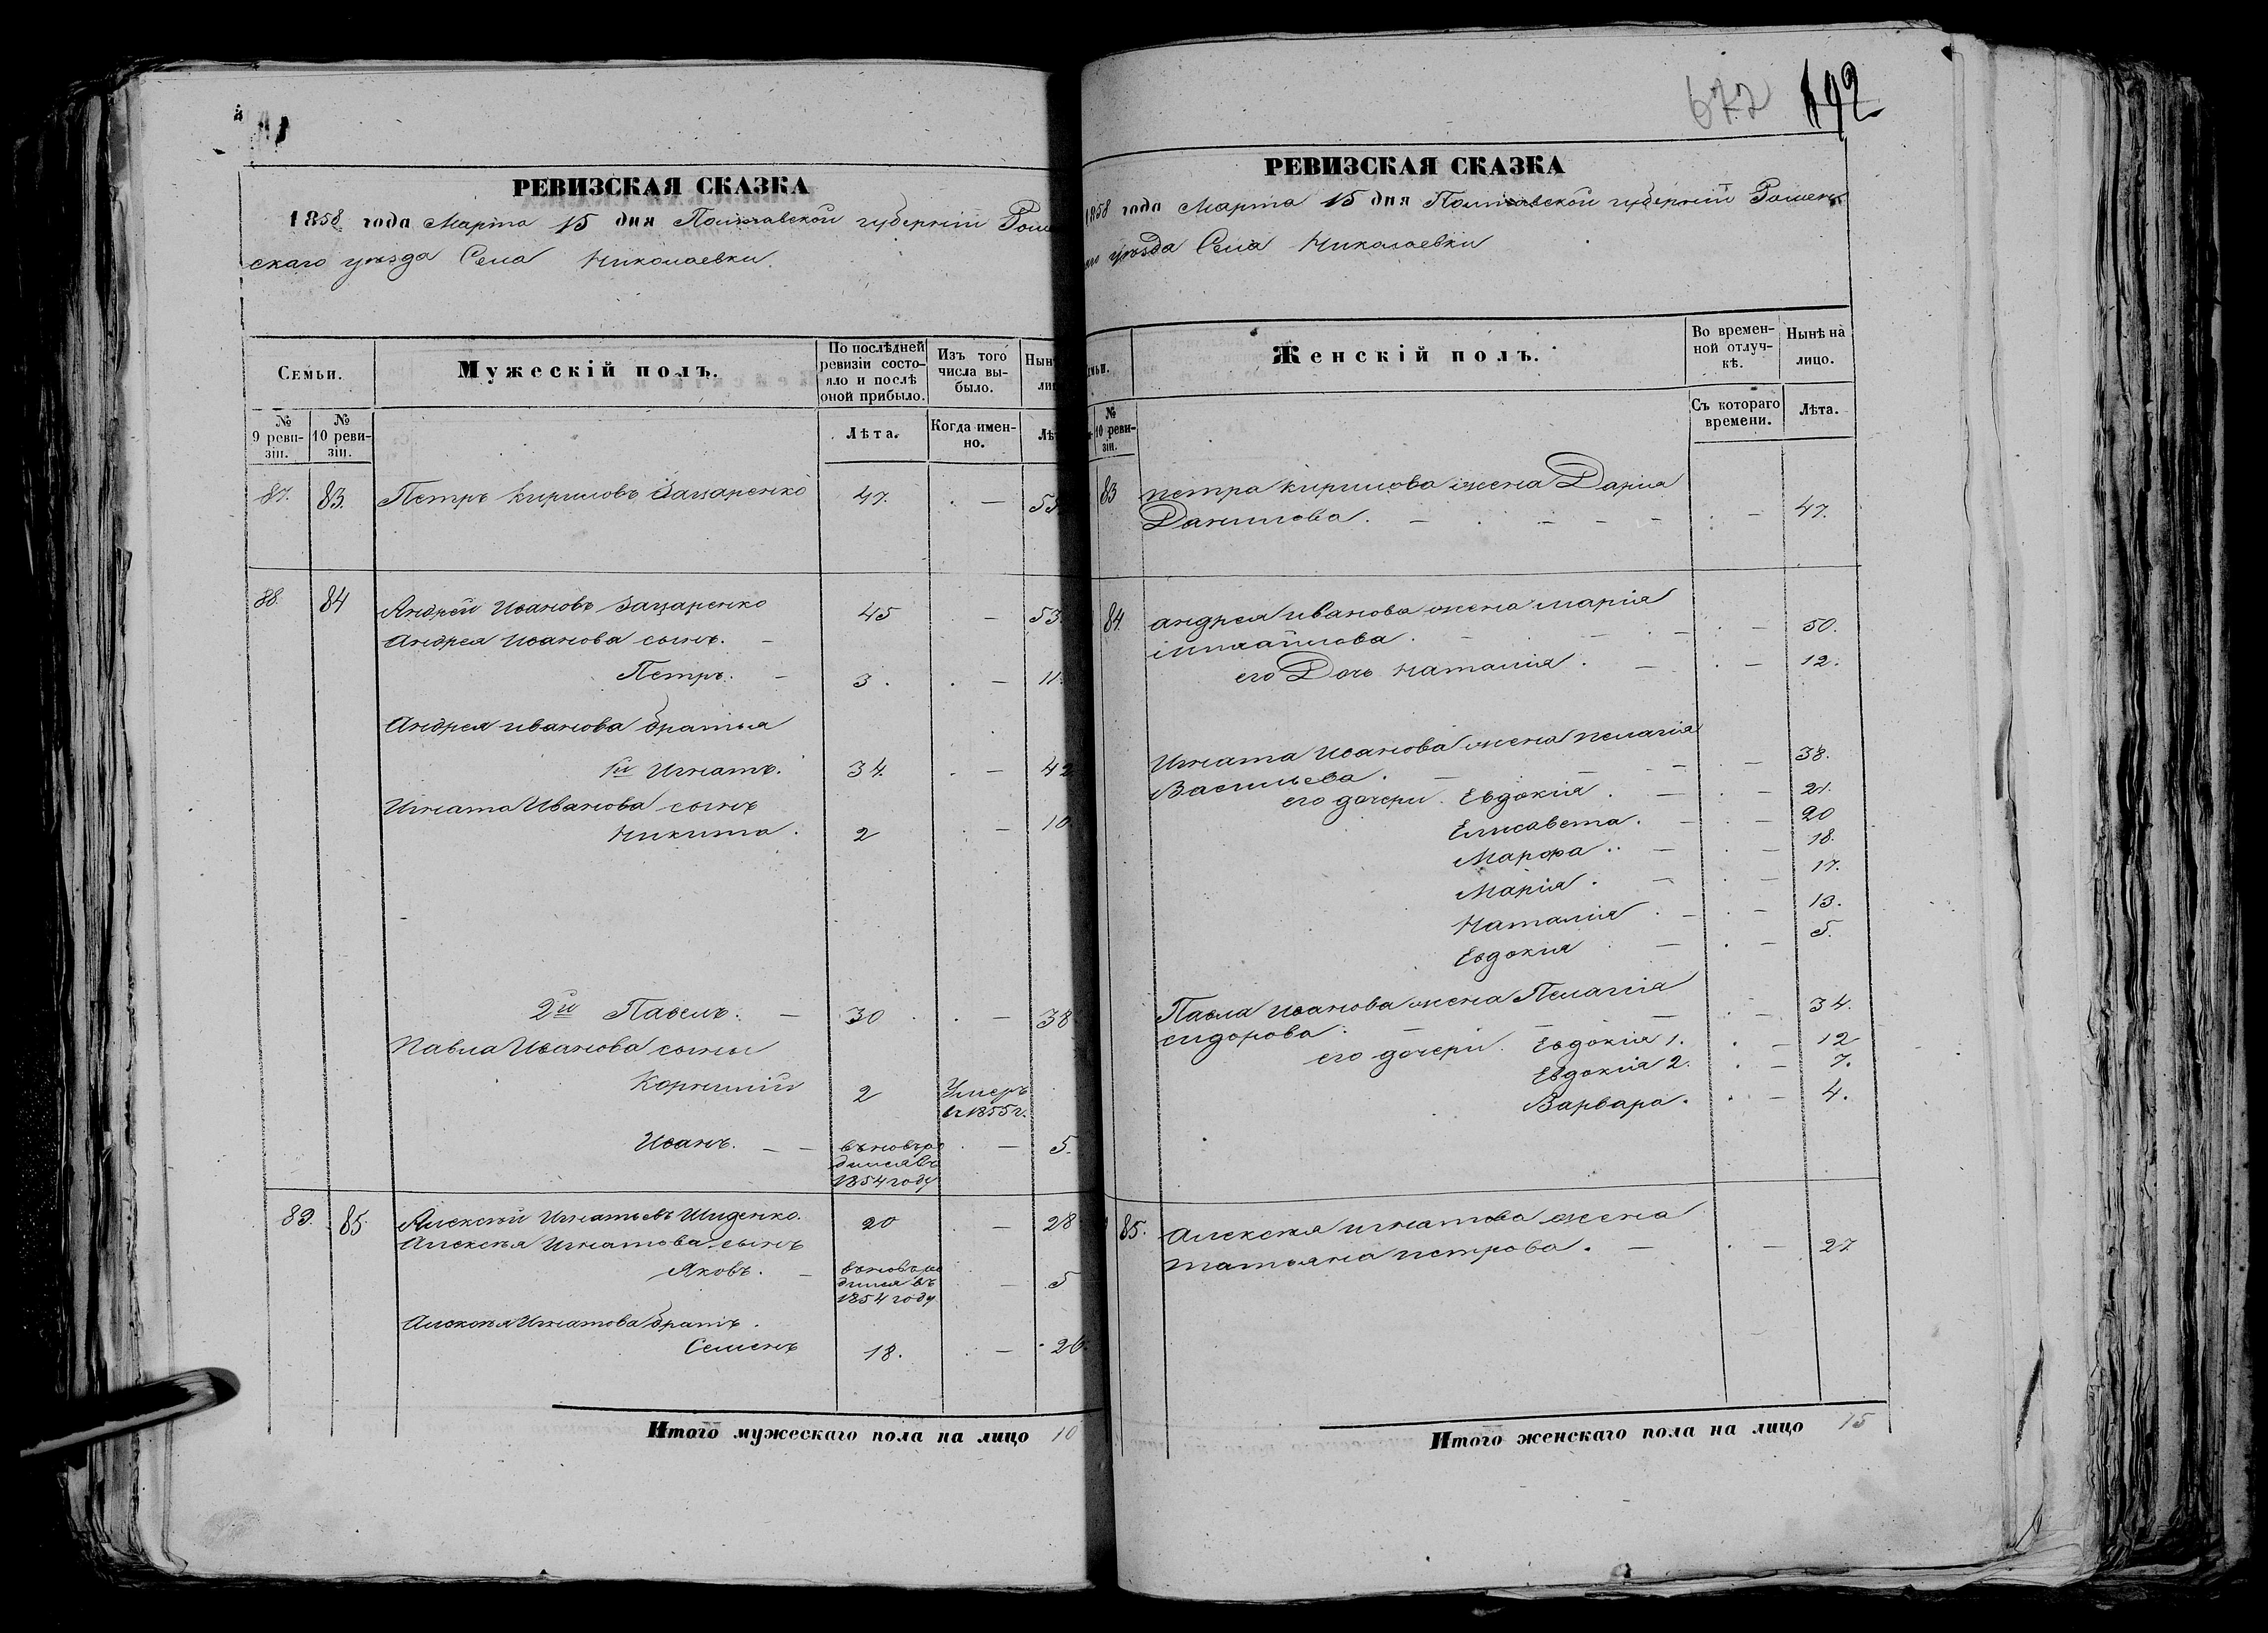 РЕВИЗСКАЯ СКАЗКА
1858 года Марта 15 дня Полтавской губернии
скаго уезда Села Николаевки
Семьи.
Мужескій полъ.
По послѣдней ревизіи состояло и послѣ оной прибыло.
Изъ того числа выбыло.
№ 9 ревизіи.
№ 10 ревизіи.
Лѣта.
Когда именно.
87. 83. Петръ Кириловъ Зацаренко 47. — 55
88. 84 Андрей Ивановъ Зацаренко 45 — 53.
Андрея Иванова сынъ. —
Петръ. — 3. — 11.
Андрея Иванова братья
1й Игнатъ. 34. — 42
Игната Иванова сынъ
Никита. 2 — 10
2й Павелъ. — 30 — 38
Павла Иванова сыны
Корнилій 2 Умеръ
1855 г.
Иванъ. — — вновь ро — 5.
дился въ
1854 году
89. 85. Алексѣй Игнатьевъ Шиденко. 20 — 28
Алексѣя Игнатова сынъ
Яковъ. — вновь ро — 5
дился въ
1854 году
Алексѣя Игнатова братъ.
Семенъ 18. — 26
Итого мужескаго пола на лицо 10
672 692
РЕВИЗСКАЯ СКАЗКА
1858 года Марта 15 дня Полтавской губерніи Ромен
уѣзда Села Николаевки
Женскій полъ.
Во временной отлучкѣ.
Нынѣ на лицо.
№ 10 ревизіи.
Съ котораго времени.
Лѣта.
83 Петра Кирилова жена Дарія
Данилова. — — — — — 47.
84. Андрея Иванова жена Марія
Михайлова. — — — — 50.
его Дочь Наталія. — — 12.
Игната Иванова жена Пелагія
Васильева. — — — — 38.
его дочери. Евдокія. — — 21.
Елисавета. — — 20
Марфа. — — 18.
Марія. — — 17.
Наталія. — — 13.
Евдокія — — 5.
Павла Иванова жена Пелагія
Сидорова. — — — — 34.
его дочери. Евдокія 1. — 12
Евдокія 2. — 7.
Варвара. — 4.
85. Алексѣя Игнатова жена
Татьяна Петрова. — — 27
Итого женскаго пола на лицо 15